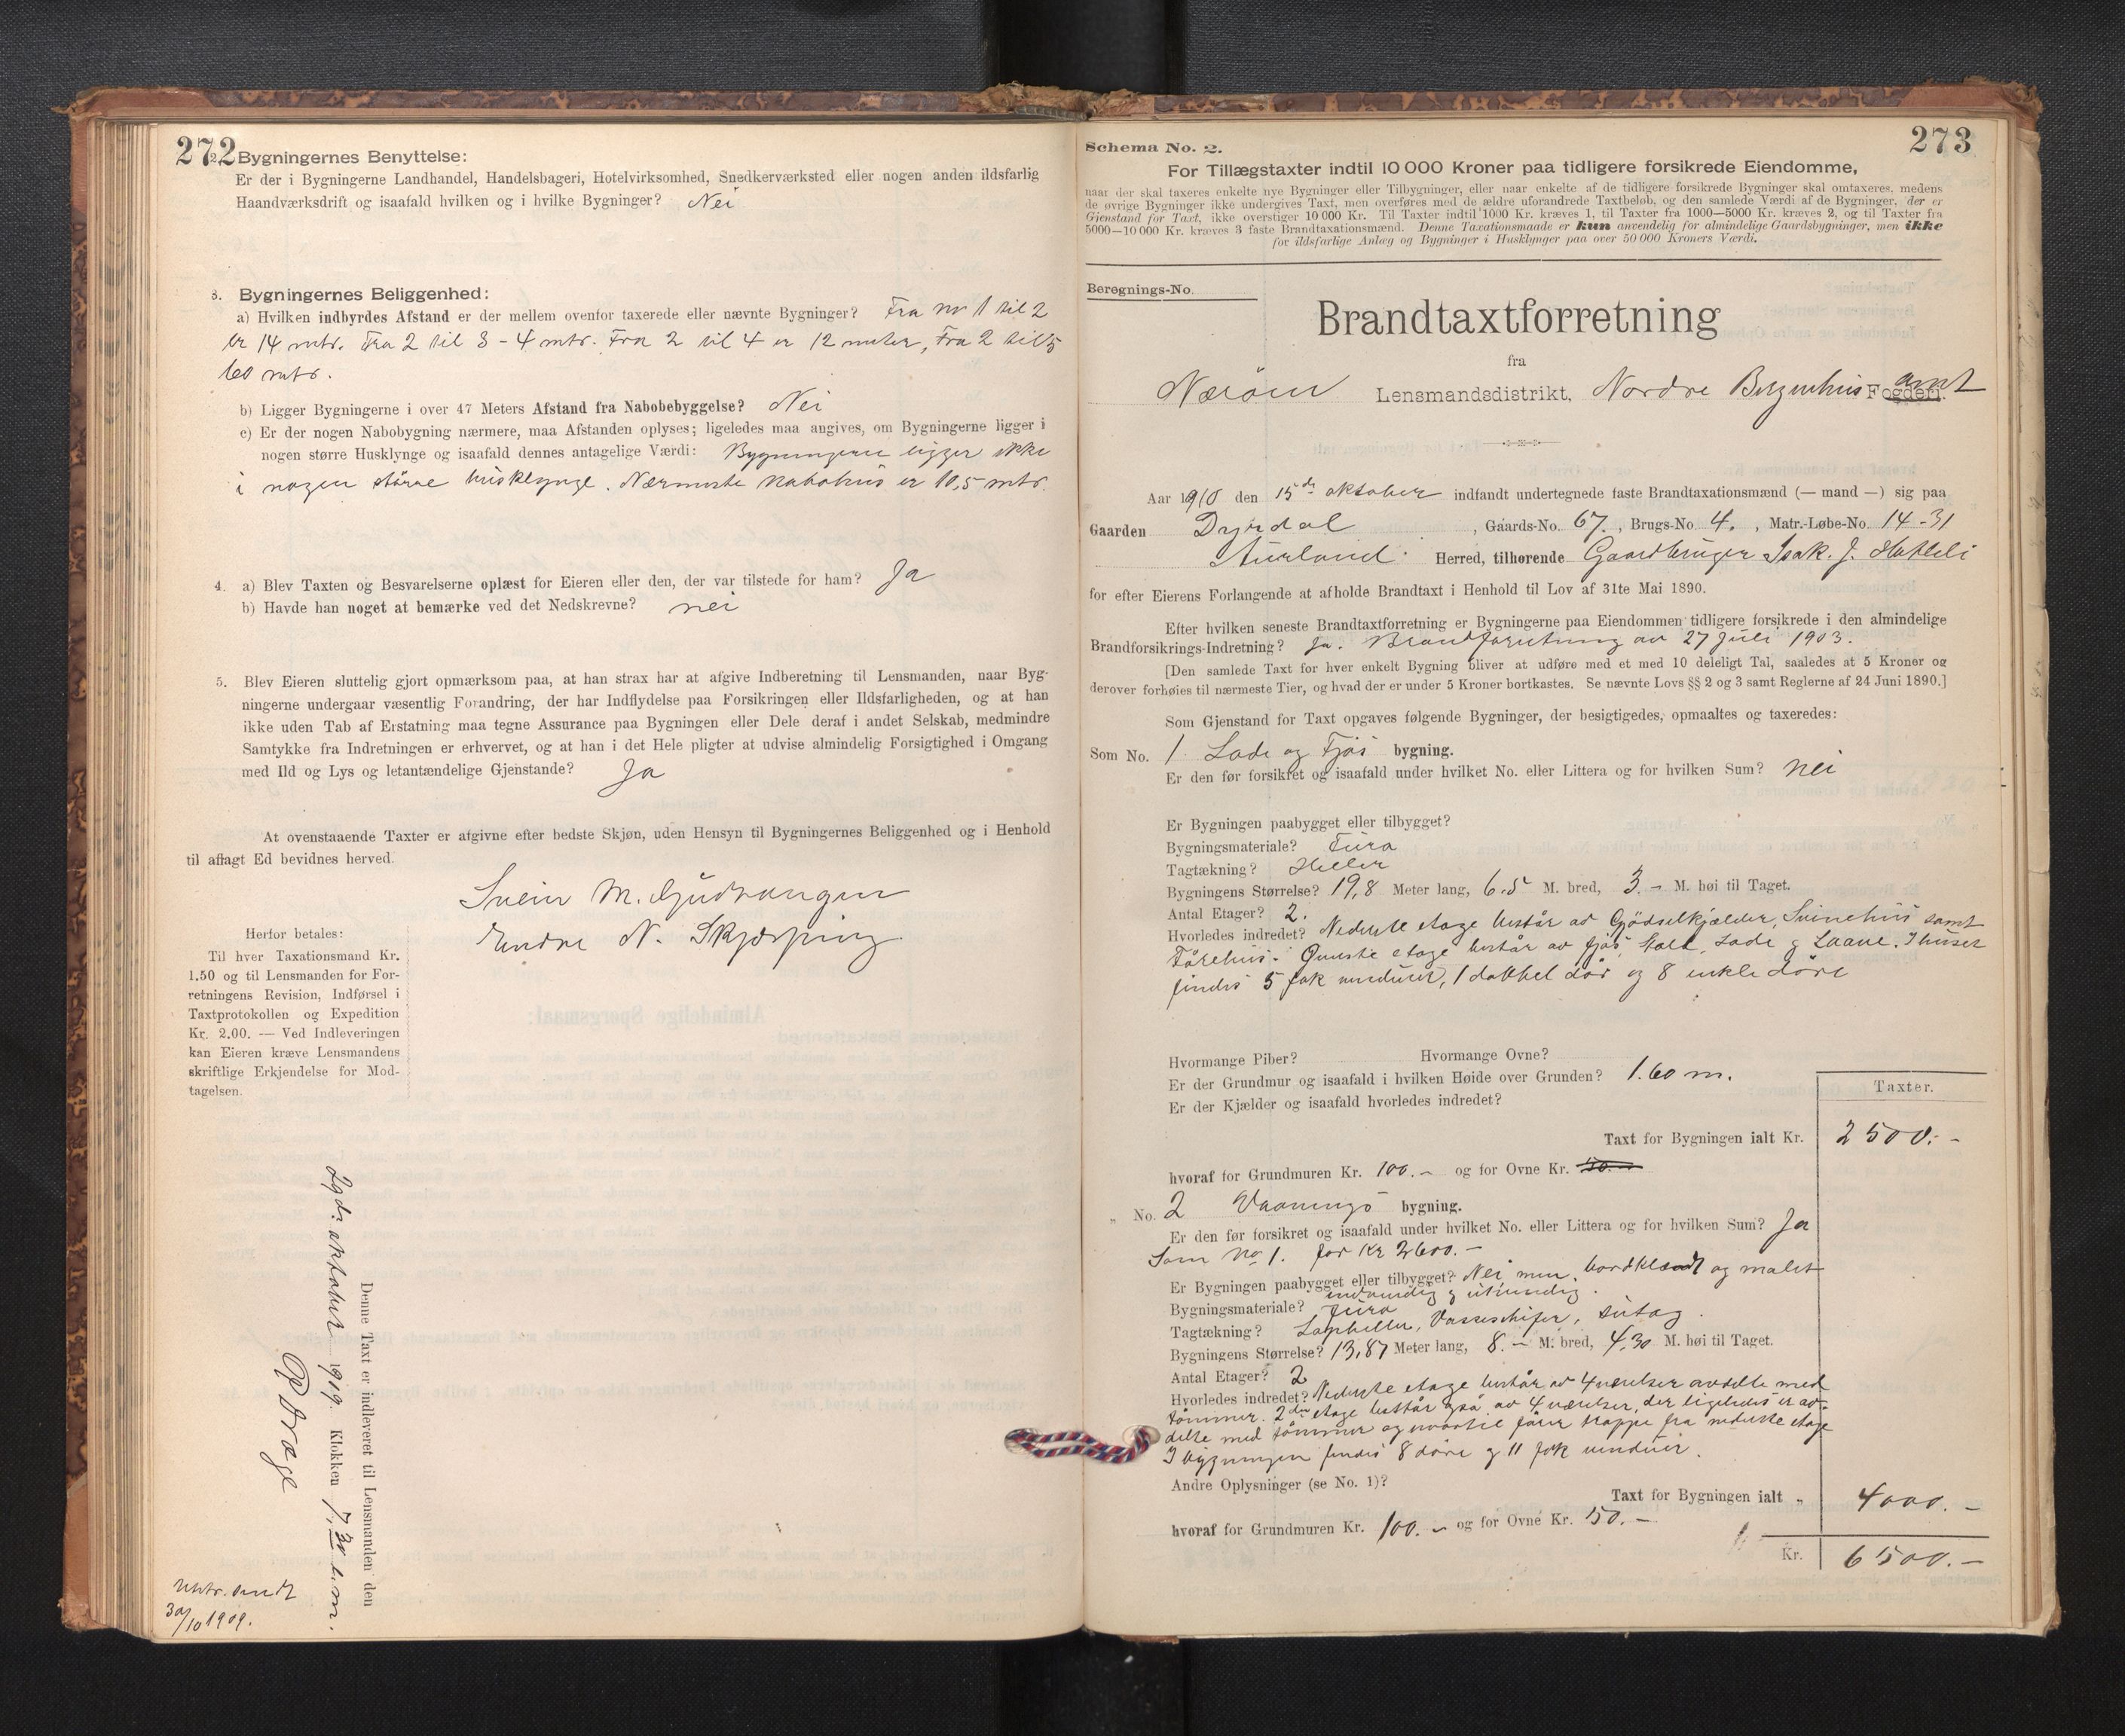 272
2. Bygningernes Benyttelse:
Er der i Bygningerne Landhandel, Handelsbageri, Hotelvirksomhed, Snedkerværksted eller nogen anden ildsfarlig
Haandværksdrift og isaafald hvilken og i hvilke Bygninger? Nei
3. Bygningernes Beliggenhed:
a) Hvilken indbyrdes Afstand er der mellem ovenfor taxerede eller nævnte Bygninger? Fra no 1 til 2
er 14 mtr. Fra 2 til 3 - 4 mtr. Fra 2 til 4 er 12 meter, Fra 2 til 5
60 mtr.
b) Ligger Bygningerne i over 47 Meters Afstand fra Nabobebyggelse? Nei
c) Er der nogen Nabobygning nærmere, maa Afstanden oplyses; ligeledes maa angives, om Bygningerne ligger i
nogen større Husklynge og isaafald dennes antagelige Værdi: Bygningerne ligger ikke
i nogen större husklynge. Nærmeste nabohus er 10,5 mtr.
4. a) Blev Taxten og Besvarelserne oplæst for Eieren eller den, der var tilstede for ham? Ja
b) Havde han noget at bemærke ved det Nedskrevne? nei
5. Blev Eieren sluttelig gjort opmærksom paa, at han strax har at afgive Indberetning til Lensmanden, naar Byg-
ningerne undergaar væsentlig Forandring, der har Indflydelse paa Forsikringen eller Ildsfarligheden, og at han
ikke uden Tab af Erstatning maa tegne Assurance paa Bygningen eller Dele deraf i andet Selskab, medmindre
Samtykke fra Indretningen er erhvervet, og at han i det Hele pligter at udvise almindelig Forsigtighed i Omgang
med Ild og Lys og letantændelige Gjenstande? Ja
At ovenstaaende Taxter er afgivne efter bedste Skjøn, uden Hensyn til Bygningernes Beliggenhed og i Henhold
til aflagt Ed bevidnes herved.
Svein M. Gudvangen
Endre N. Skjerping
Herfor betales:
Til hver Taxationsmand Kr.
1.50 og til Lensmanden for For-
retningens Revision, Indførsel i
Taxtprotokollen og Expedition
Kr. 2.00. — Ved Indleveringen
kan Eieren kræve Lensmandens
skriftlige Erkjendelse for Mod-
tagelsen.
Denne Taxt er indleveret til Lensmanden den
29de oktober 1909. Klokken 7,30 e.m.
Uttr. sendt
30/10 1909.
273
Schema No. 2.
For Tillægstaxter indtil 10 000 Kroner paa tidligere forsikrede Eiendomme,
naar der skal taxeres enkelte nye Bygninger eller Tilbygninger, eller naar enkelte af de tidligere forsikrede Bygninger skal omtaxeres, medens
de øvrige Bygninger ikke undergives Taxt, men overføres med de ældre uforandrede Taxtbeløb, og den samlede Værdi af de Bygninger, der er
Gjenstand for Taxt, ikke overstiger 10 000 Kr. Til Taxter indtil 1000 Kr. kræves 1, til Taxter fra 1000—5000 Kr. kræves 2, og til Taxter fra
5000—10 000 Kr. kræves 3 faste Brandtaxationsmænd. Denne Taxationsmaade er kun anvendelig for almindelige Gaardsbygninger, men ikke
for ildsfarlige Anlæg og Bygninger i Husklynger paa over 50 000 Kroners Værdi.
Beregnings-No.
Brandtaxtforretning
fra
Nærøen Lensmandsdistrikt, Nordre Bergenhus Fogderi. amt
Aar 1910 den 15de oktober indfandt undertegnede faste Brandtaxationsmænd (— mand —) sig paa
Gaarden Dyrdal, Gaards-No. 67., Brugs-No. 4., Matr.-Løbe-No. 14-31
Aurland Herred, tilhørende Gaardbruger Isak. J. Hatleli
for efter Eierens Forlangende at afholde Brandtaxt i Henhold til Lov af 31te Mai 1890.
Efter hvilken seneste Brandtaxtforretning er Bygningerne paa Eiendommen tidligere forsikrede i den almindelige
Brandforsikrings-Indretning? Ja. Brandforretning av 27 Juli 1903.
[Den samlede Taxt for hver enkelt Bygning bliver at udføre med et med 10 deleligt Tal, saaledes at 5 Kroner og
derover forhøies til nærmeste Tier, og hvad der er under 5 Kroner bortkastes. Se nævnte Lovs §§ 2 og 3 samt Reglerne af 24 Juni 1890.]
Som Gjenstand for Taxt opgaves følgende Bygninger, der besigtigedes, opmaaltes og taxeredes:
Som No. 1. Lade og Fjøs bygning.
Er den før forsikret og isaafald under hvilket No. eller Littera og for hvilken Sum? nei
Er Bygningen paabygget eller tilbygget?
Bygningsmateriale? Furo
Tagtækning? Heller
Bygningens Størrelse? 19,8 Meter lang, 6.5 M. bred, 3.- M. høi til Taget.
Antal Etager? 2.
Hvorledes indret? Nederste etage består av Gjödselkjælder, Svinehus samt
Fårehus. Överste etage består av fjøs, stald, Lade og Laave. I huset
findes 5 fak vinduer, 1 dobbel dör og 8 enkle döre
Hvormange Piber? Hvormange Ovne?
Er der Grundmur og isaafald i hvilken Høide over Grunden? 1.60 m.
Er der Kjælder og isaafald hvorledes indredet?
Taxter.
Taxt for Bygningen ialt Kr. 2500.-
hvoraf for Grundmuren Kr. 100.- og for Ovne Kr. 50.-
„ No. 2 Vaanings bygning.
Er den før forsikret og isaafald under hvilket No. eller Littera og for hvilken Sum? Ja
Som No 1. for Kr 2600.-
Er Bygningen paabygget eller tilbygget? Nei, men bordklædt og malet
indvendig og utvendig.
Bygningsmateriale? Furo
Tagtækning? Lapheller, Vosseskifer, sutag.
Bygningens Størrelse? 13,87 Meter lang, 8.- M. bred, 4,30 M. høi til Taget.
Antal Etager? 2
Hvorledes indredet? Nederste etage består av 4 værelser avdelte med
tömmer. 2den etage består også av 4 værelser, der ligeledes er av-
delte med tömmer og hvortil förer trappe fra nederste etage
I bygningen findes 8 döre og 11 fak vinduer.
Andre Oplysninger (se No. 1)?
Taxt for Bygningen ialt „ 4000.-
hvoraf for Grundmuren Kr. 100.- og for Ovne Kr. 50.-
Kr. 6500.-